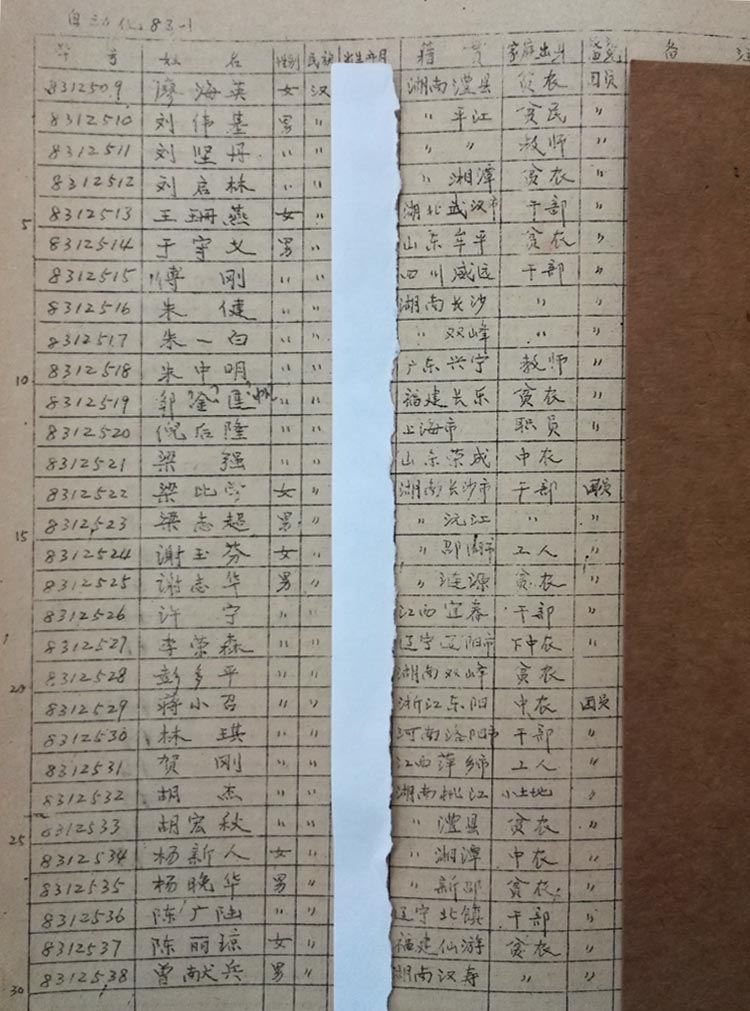 自动化83-1
学号 姓名 性别 民族 出生年月 籍贯 家庭出身 党团 备注
8312509 廖海英 女 汉 湖南澧县 贫农 团员
8312510 刘伟基 男 〃 〃 平江 贫民 〃
8312511 刘坚丹 〃 〃 〃 〃 教师 〃
8312512 刘启林 〃 〃 〃 湘潭 贫农 〃
5 8312513 王珊燕 女 〃 湖北武汉市 干部 〃
8312514 于守义 男 〃 山东牟平 贫农 〃
8312515 傅刚 〃 〃 四川威远 干部 〃
8312516 朱健 〃 〃 湖南长沙 〃 〃
8312517 朱一白 〃 〃 〃 双峰 〃 〃
10 8312518 朱中明 〃 〃 广东兴宁 教师 〃
8312519 邹 〃 〃 福建长乐 贫农 〃
8312520 倪后隆 〃 〃 上海市 职员 〃
8312521 梁强 〃 〃 山东荣成 中农
8312522 梁比 女 〃 湖南长沙市 干部 团员
15 8312523 梁志超 男 〃 〃 沅江 〃 〃
8312524 谢玉芬 女 〃 〃 工人 〃
8312525 谢志华 男 〃 〃 涟源 贫农 〃
8312526 许宁 〃 〃 江西宜春 干部 〃
8312527 李荣森 〃 〃 辽宁辽阳市 下中农 〃
20 8312528 彭多平 〃 〃 湖南双峰 贫农
8312529 蒋小召 〃 〃 浙江东阳 中农 团员
8312530 林琪 〃 〃 河南洛阳市 干部 〃
8312531 贺刚 〃 〃 江西萍乡市 工人 〃
8312532 胡杰 〃 〃 湖南桃江 小土地 〃
25 8312533 胡宏秋 〃 〃 〃 澧县 贫农 〃
8312534 杨新人 女 〃 〃 湘潭 中农 〃
8312535 杨晚华 男 〃 〃 新邵 贫农 〃
8312536 陈广陆 〃 〃 辽宁北镇 干部 〃
8312537 陈丽琼 女 〃 福建仙游 贫农 〃
30 8312538 曾献兵 男 〃 湖南汉寿 〃 〃